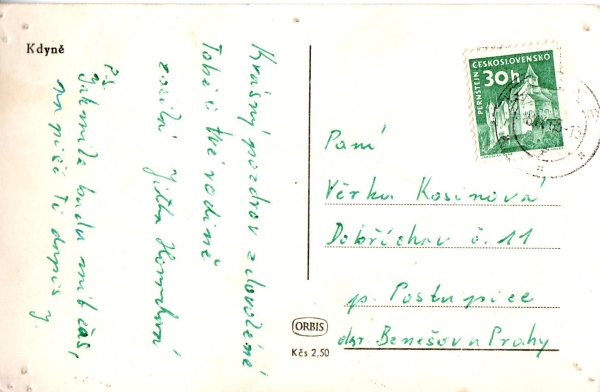 Kdyně
Krásný pozdrav z dovolené
Tobě i tvé rodině
zasílá Jitka
P.S.
Jakmile budu mít čas,
napíši Ti dopis J.
ČESKOSLOVENSKO
PERNŠTEJN
30h
Paní
Věrka Kosinová
Dobříchov č. 11
p. Postupice
okr. Benešov u Prahy
ORBIS
Kčs 2,50